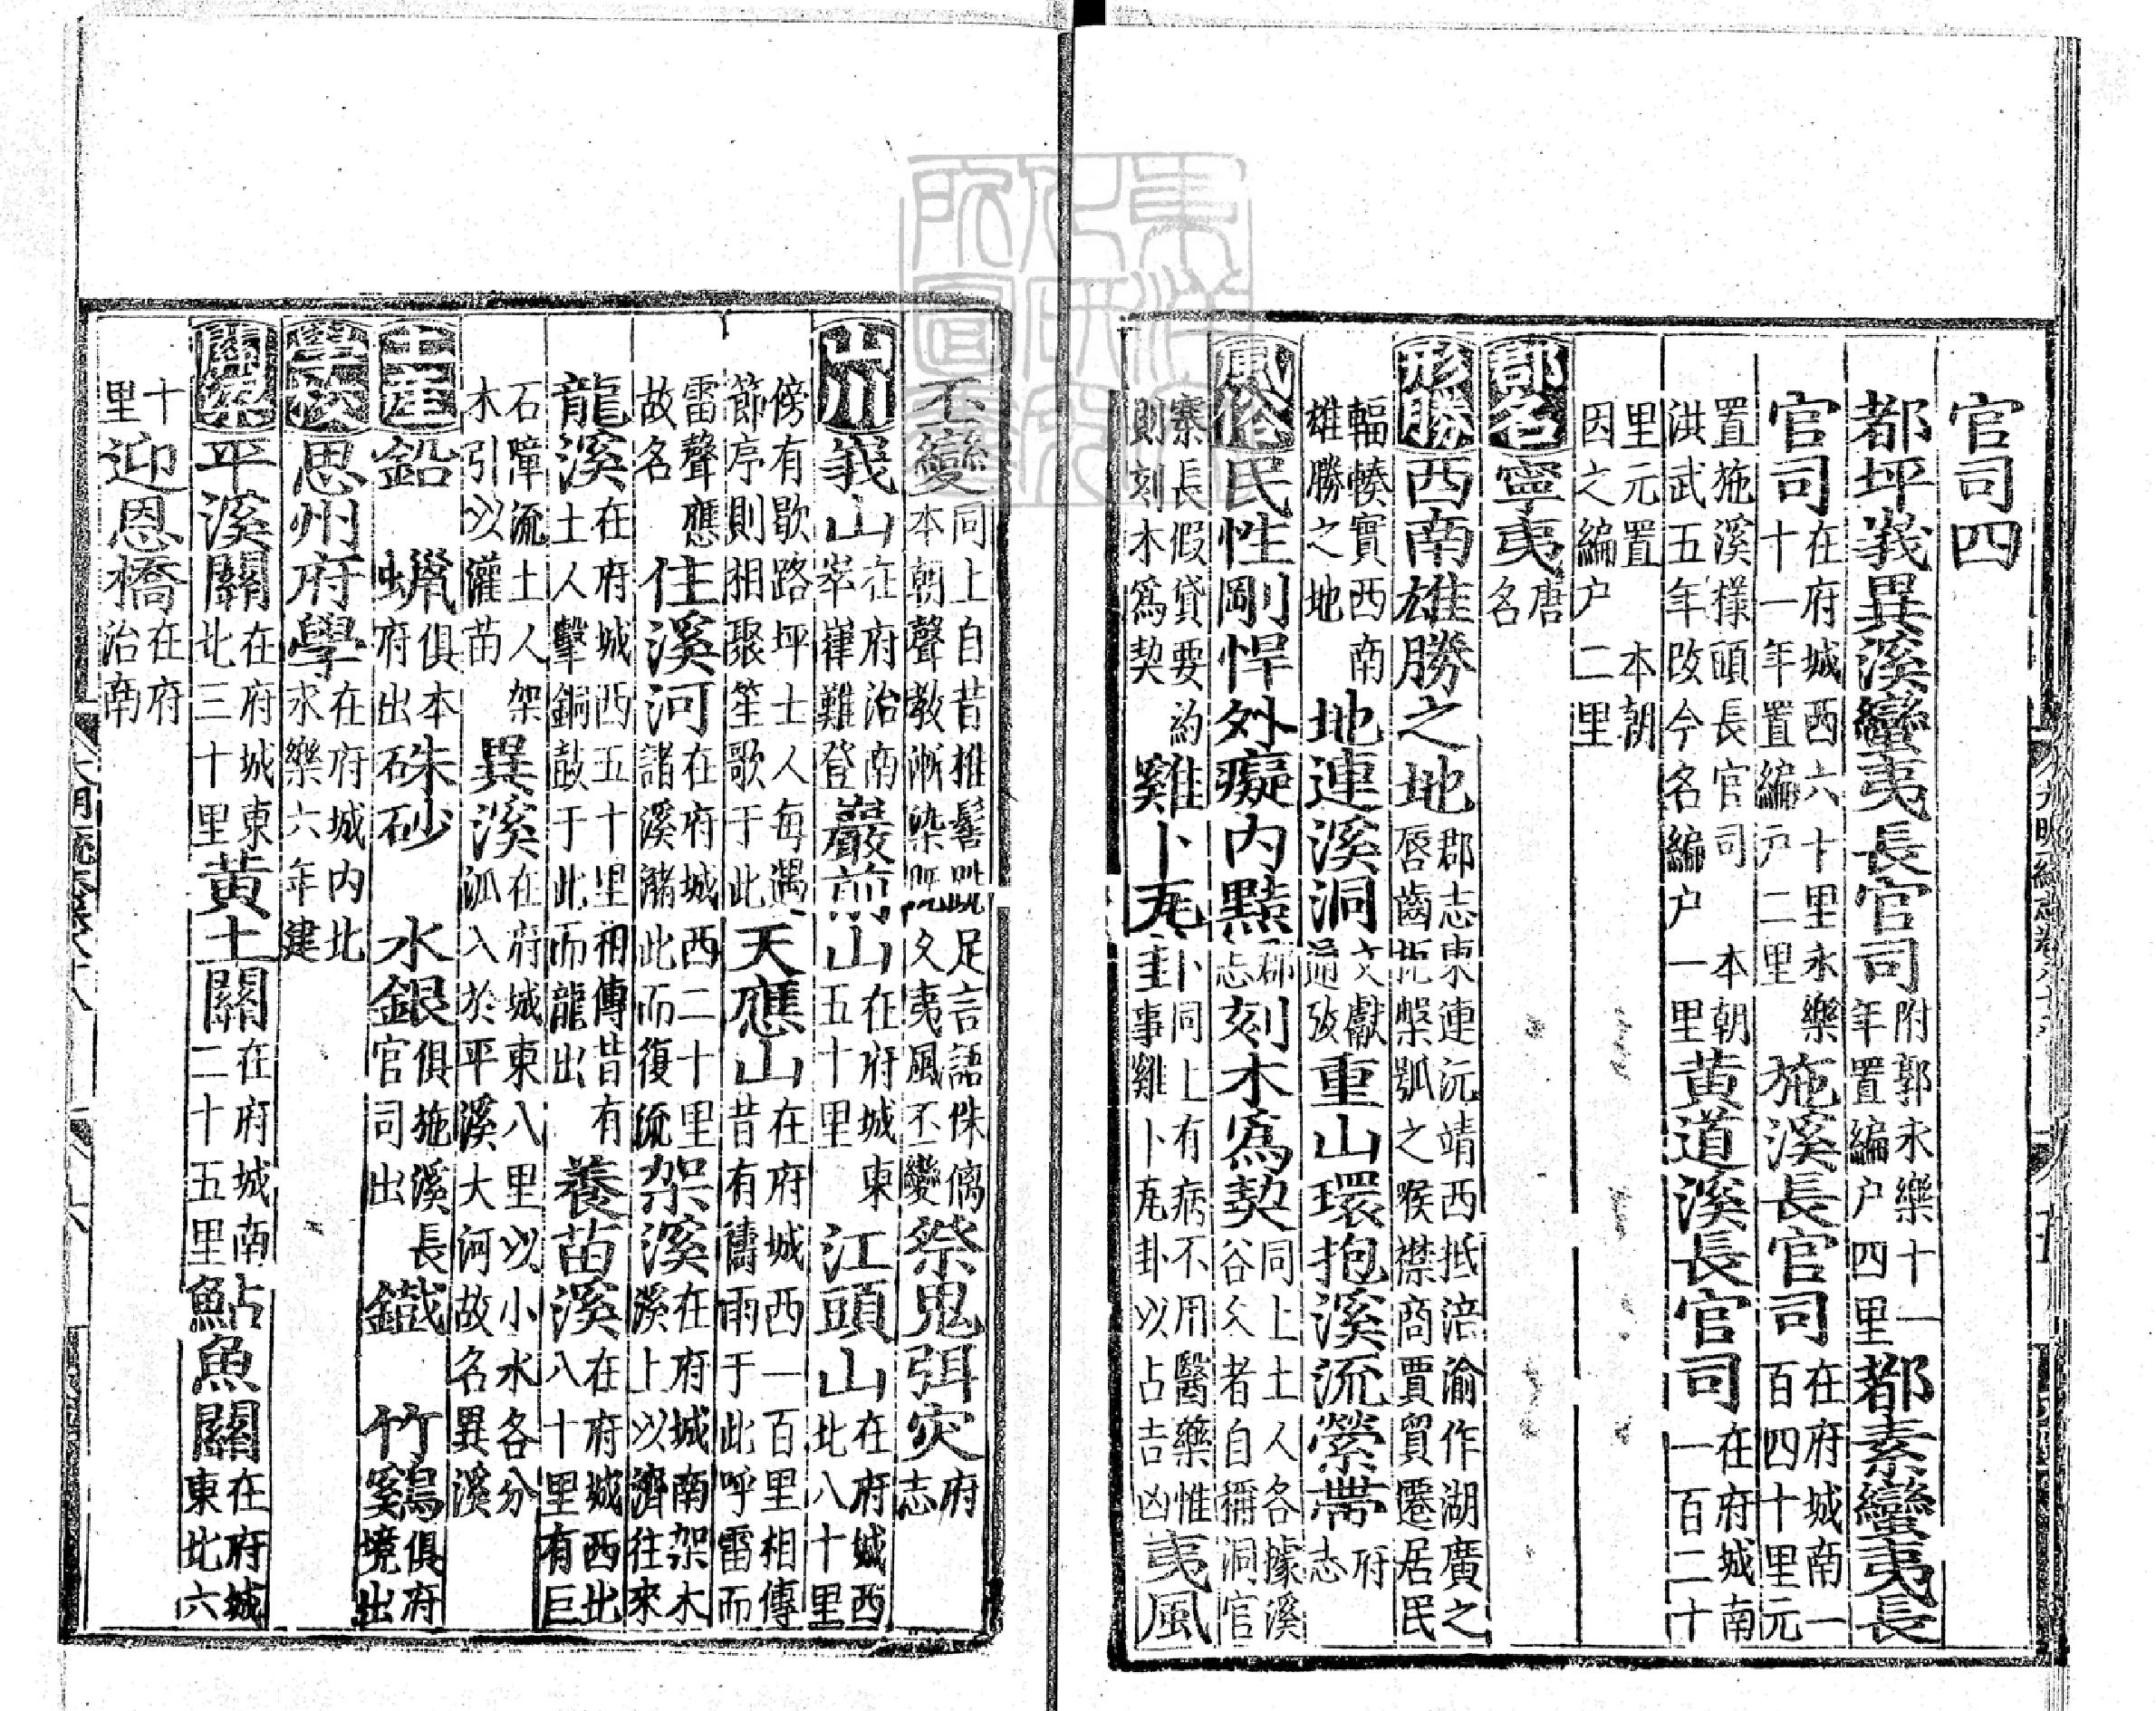 官司四
都坪峩異溪蠻夷長官司附郭永樂十一年置編户四里都素蠻夷長
官司在府城西六十里永樂十一年置編户二里施溪長官司在府城南一百四十里元
置施溪樣頭長官司本朝洪武五年改今名編户一里黄道溪長官司在府城南一百二十
里元置本朝因之編户二里
郡名寧夷唐名
形勝西南雄勝之地郡志東連沅靖西抵涪渝作湖廣之唇齒扼槃瓠之喉襟商賈貿遷居民
輻輳實西南雄勝之地地連溪洞文獻通攷重山環抱溪流縈帶府志
風俗民性剛悍外癡内黠郡志刻木爲契同上土人各據溪谷久者自稱洞官
寨長假貸要約則刻木爲契雞卜瓦卦同上有病不用醫藥惟事雞卜瓦卦以占吉凶夷風
丕變同上自昔椎髻呲足言語侏僪本朝聲教漸染既久夷風丕變祭鬼弭灾府志
山川峩山在府治南崒嵂難登巖前山在府城東五十里江頭山在府城西北八十里
傍有歇路坪士人每遇節序則相聚笙歌于此天應山在府城西一百里相傳昔有禱雨于此呼雷而
雷聲應故名住溪河在府城西二十里諸溪瀦此而復流架溪在府城南架木溪上以濟往來
龍溪在府城西五十里相傳昔有土人擊銅鼓于此而龍出養苗溪在府城西北八十里有巨
石障流土人架木引以灌苗異溪在府城東八里以小水各分派入於平溪大河故名異溪
土產鉛蠟俱本府出硃砂水銀俱施溪長官司出鐵竹鷄俱府境出
學校思州府學在府城内北永樂六年建
關梁平溪關在府城東北三十里黄土關在府城南二十五里鮎魚關在府城東北六
十里迎恩橋在府治南